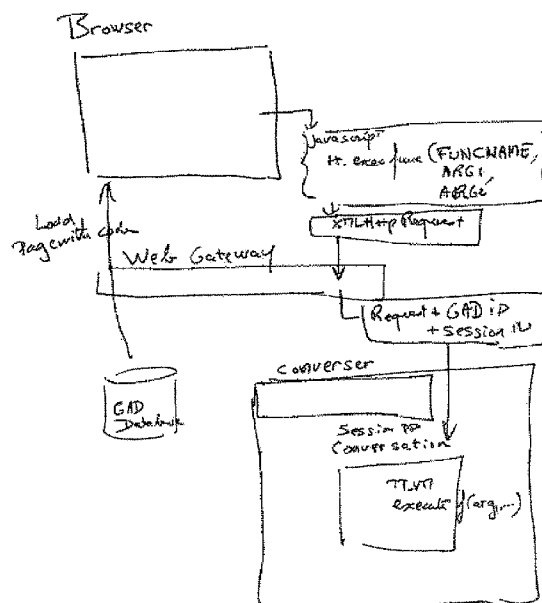 Browser
Javascript
H. exec func (FUNCNAME,
ARG1,
ARG2,
XMLHttp Request
Load
Page with code
Web Gateway
Request + GAD ID
+ Session ID
Converser
GAD
Database
Session ID
Conversation
execute f(arg,...)